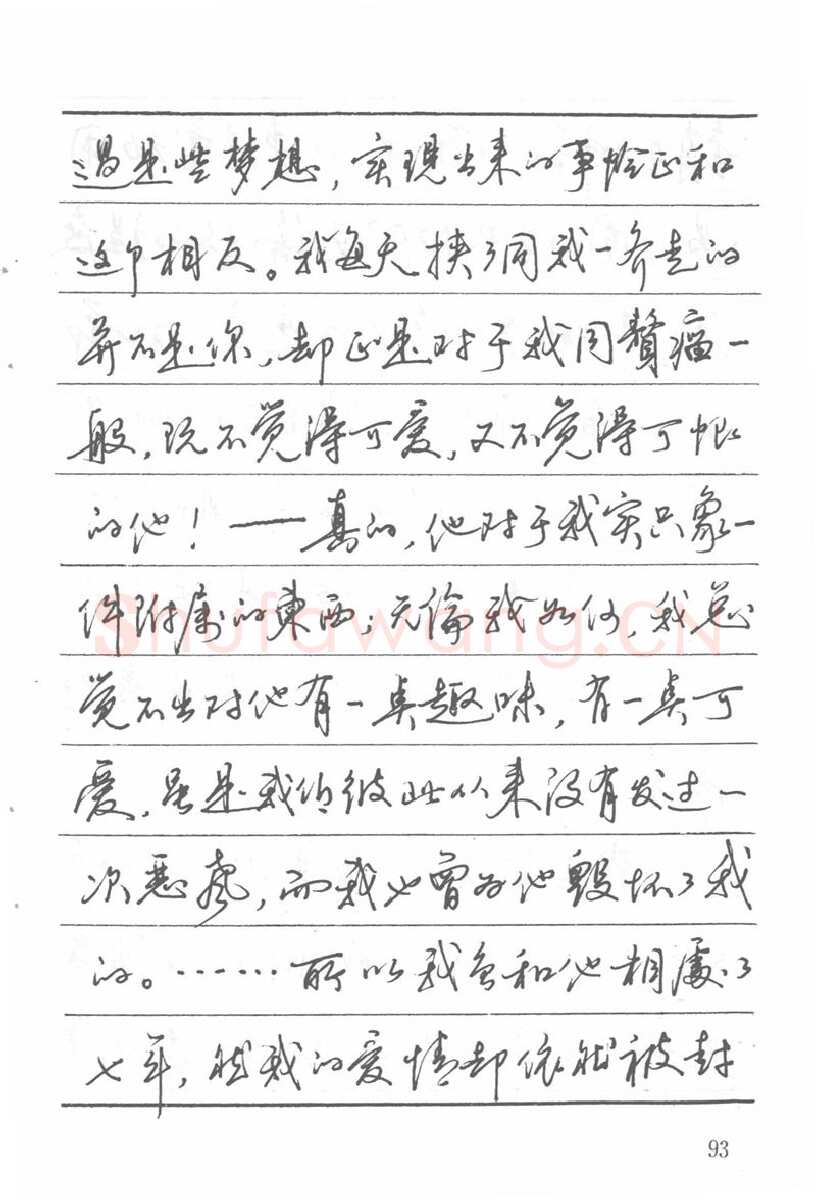 过是些梦想，实现出来的事恰正和
这个相反。我每天挟了同我一齐走的
并不是你，却正是对于我同贅瘤一
般，既不觉得可爱，又不觉得可恨
的他！——真的，他对于我实只象一
件附属的東西；无倫我如何，我总
觉不出对他有一点趣味，有一点可
爱，虽是我们彼此从来没有发过一
次恶声，而我也曾为他毀坏了我
的。……所以我和他相處了
七年，然我的爱情却依然被封
Shufawang.CN
93